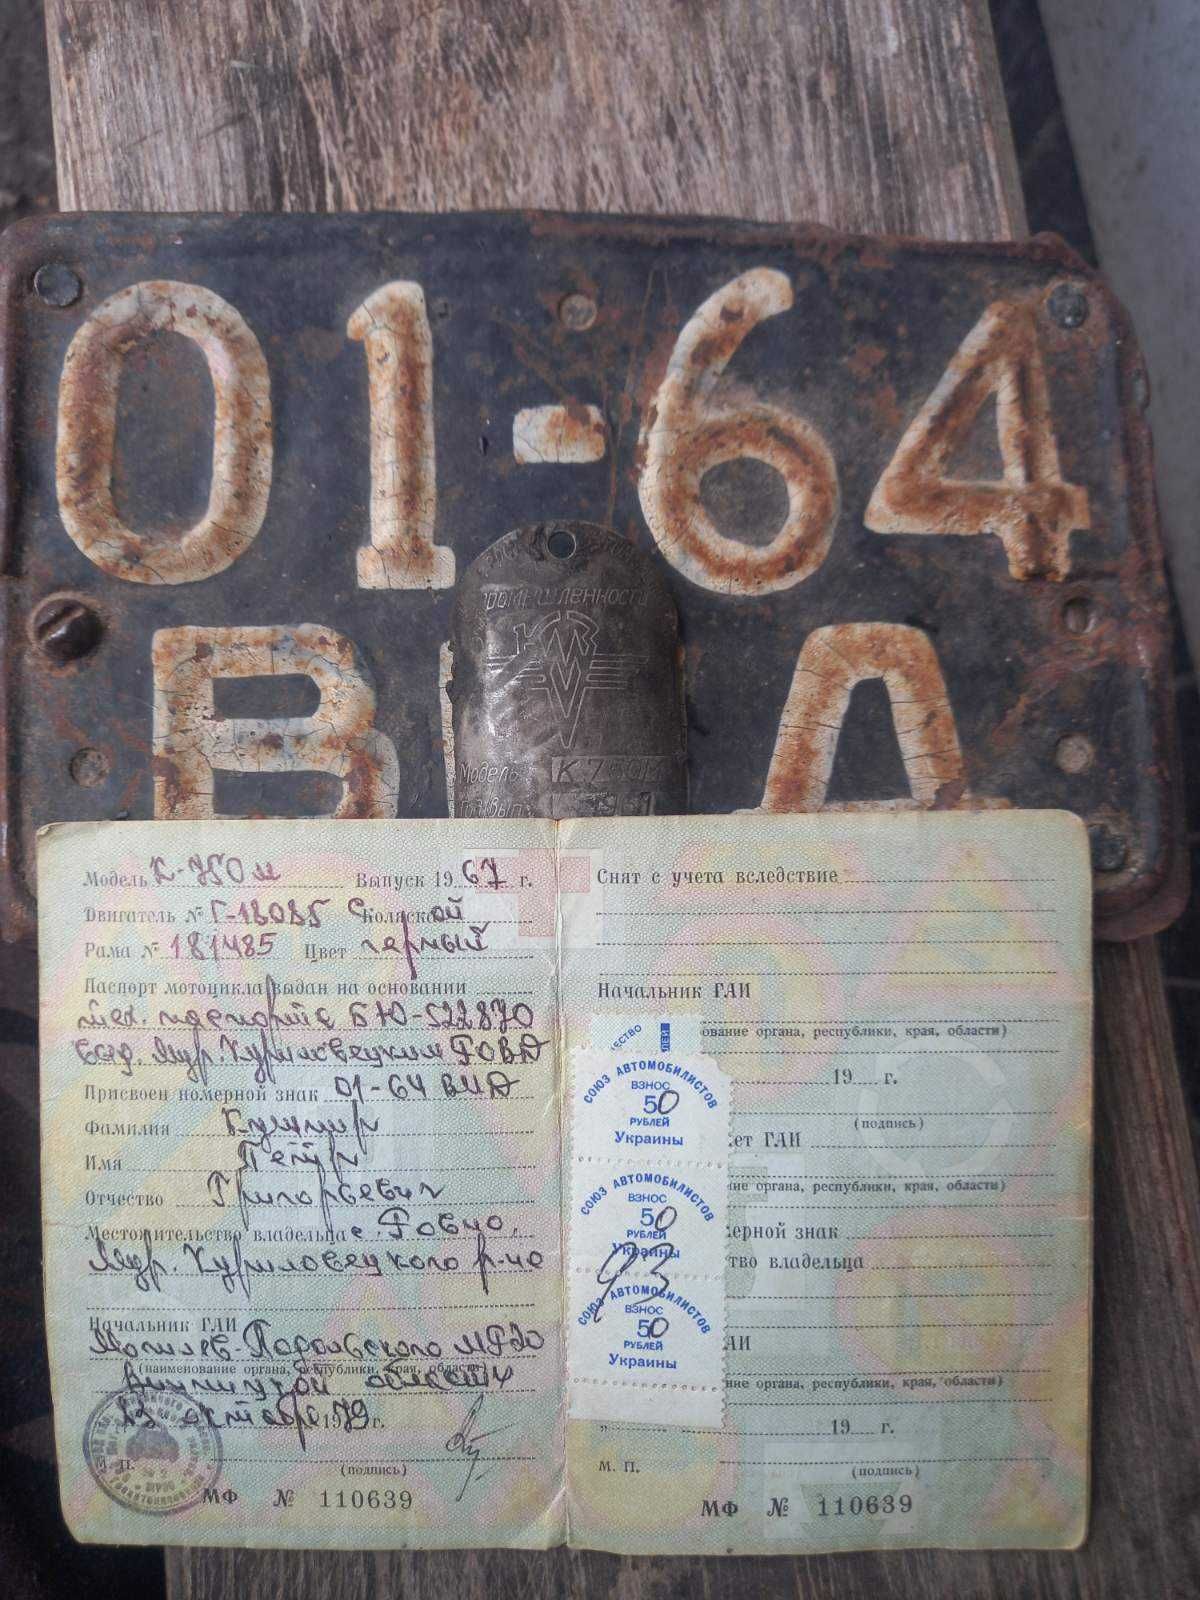 01-64
В Д
промышленности
Модель К-750М
Модель К-750м Выпуск 1967 г.
Двигатель № Г-18085 С Коляской
Рама № 181485 Цвет черный
Паспорт мотоцикла выдан на основании
тех. паспорта БЮ-522870
Мур. Куриловецким РОВД
Присвоен номерной знак 01-64 ВИД
Фамилия
Имя Петр
Отчество Григорьевич
Местожительство владельца с. Ровно,
Мур. Куриловецкого р-на
Начальник ГАИ
Могилев-Подольского МРЭО
(наименование органа, республики, края, области)
Винницкой области
13 октября 1979 г.
П.
(подпись)
МФ № 110639
Снят с учета вследствие
Начальник ГАИ
ование органа, республики, края, области)
19 г.
(подпись)
ет ГАИ
ние органа, республики, края, области)
ерной знак
тво владельца
АИ
ние органа, республики, края, области)
" 19 г.
М. П.
(подпись)
МФ № 110639
СОЮЗ АВТОМОБИЛИСТОВ
ВЗНОС
50
РУБЛЕЙ
Украины
СОЮЗ АВТОМОБИЛИСТОВ
ВЗНОС
50
РУБЛЕЙ
Украины
93
СОЮЗ АВТОМОБИЛИСТОВ
ВЗНОС
50
РУБЛЕЙ
Украины